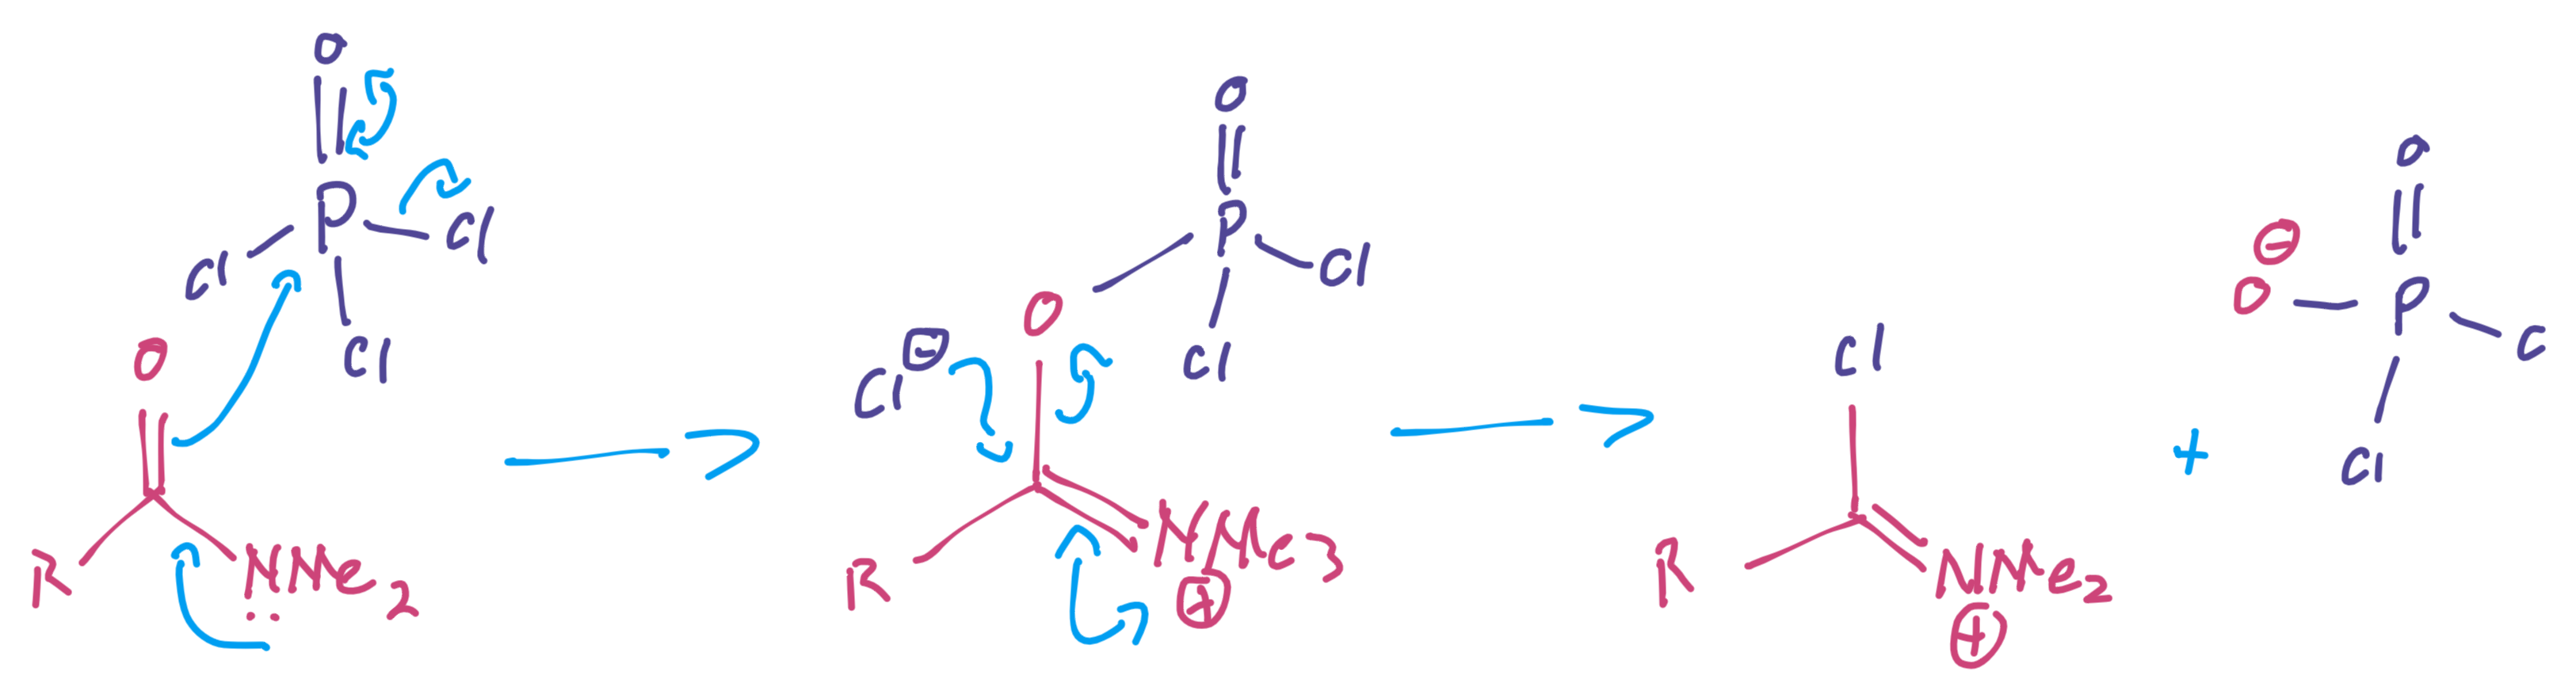 O
P
Cl
Cl
Cl
O
R
NMe2
:
O
P
Cl
Cl
O
Cl ⊖
R
NMe3
⊕
Cl
R
NMe2
⊕
+
O
⊖
O
P
C
Cl